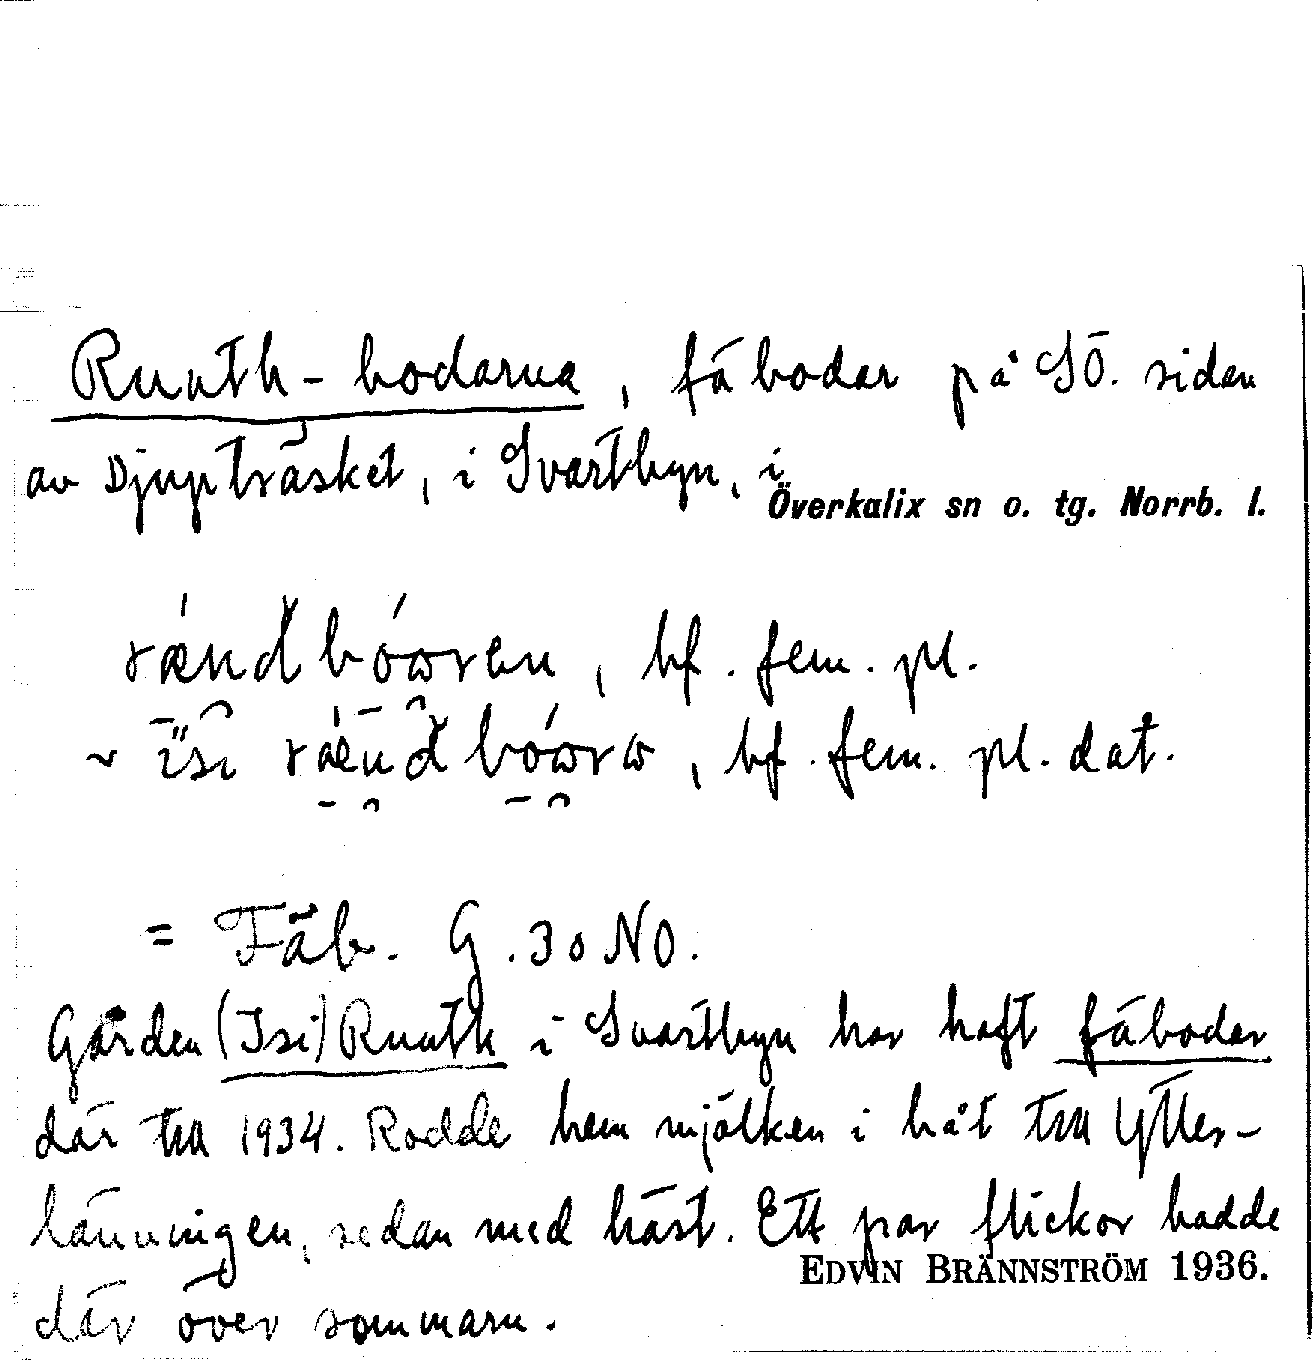 Ruuth-bodarna, fäbodar på SÖ. sidan
av Djupträsket, i Svartbyn, i
Överkalix sn o. tg. Norrb. l.
bf. fem. pl.
~ bf. fem. pl. dat.
= Fäb. G. 30 NO.
Gården (Isi) Ruuth i Svartbyn har haft fäbodar
där till 1934. Rodde hem mjölken i båt till Ytter-
länningen, sedan med häst. Ett par flickor hadde
där över sommarn.
EDVIN BRÄNNSTRÖM 1936.